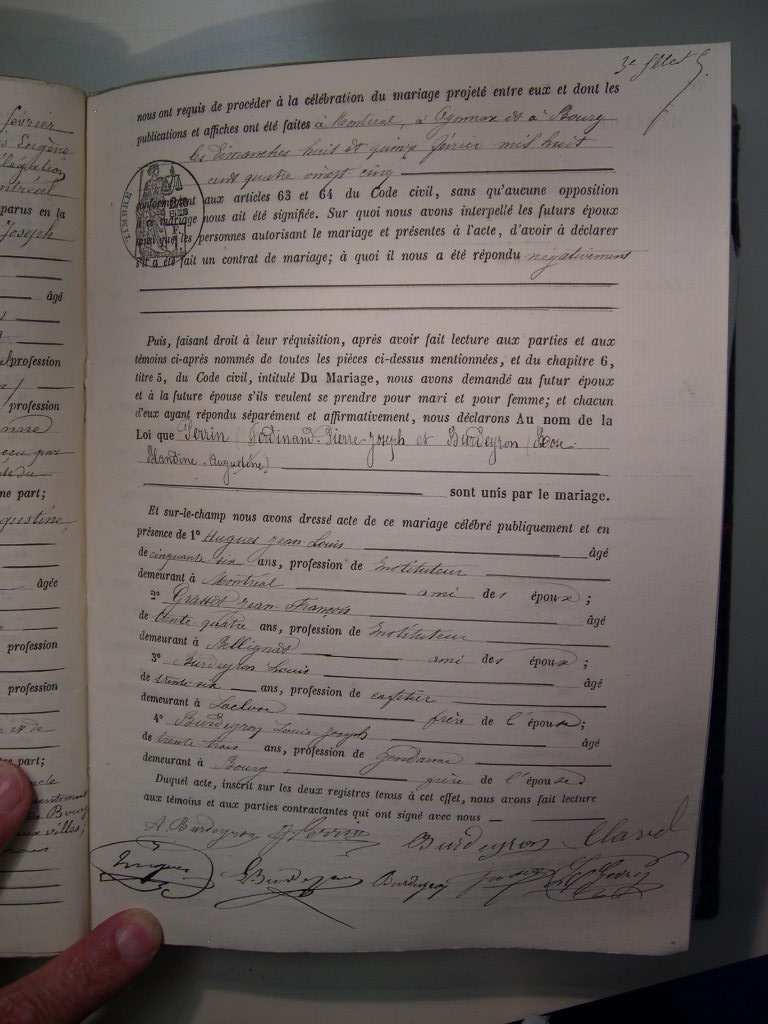 3e fillet
nous ont requis de procéder à la célébration du mariage projeté entre eux et dont les
publications et affiches ont été faites à Montréal, à Oyonnax et à Bourg
les dimanches huit et quinze février mil huit
cent quatre vingt cinq
conformément aux articles 63 et 64 du Code civil, sans qu'aucune opposition
à ce mariage nous ait été signifiée. Sur quoi nous avons interpellé les futurs époux
TIMBRE
ainsi que les personnes autorisant le mariage et présentes à l'acte, d'avoir à déclarer
s'il a été fait un contrat de mariage; à quoi il nous a été répondu négativement
Puis, faisant droit à leur réquisition, après avoir fait lecture aux parties et aux
témoins ci-après nommés de toutes les pièces ci-dessus mentionnées, et du chapitre 6,
titre 5, du Code civil, intitulé Du Mariage, nous avons demandé au futur époux
et à la future épouse s'ils veulent se prendre pour mari et pour femme; et chacun
d'eux ayant répondu séparément et affirmativement, nous déclarons Au nom de la
Loi que Perrin (Ferdinand-Pierre-Joseph et Burdeyron
Blandine-Augustine)
sont unis par le mariage.
Et sur-le-champ nous avons dressé acte de ce mariage célébré publiquement et en
présence de 1° Hugues Jean Louis âgé
de cinquante six ans, profession de Instituteur
demeurant à Montréal ami des époux;
2° Jean François âgé
de trente quatre ans, profession de Instituteur
demeurant à Bellignat ami des époux;
3° Burdeyron Louis âgé
de trente six ans, profession de cafetier
demeurant à frère de l'épouse;
4° Burdeyron Louis Joseph âgé
de trente trois ans, profession de Gendarme
demeurant à Bourg, frère de l'épouse
Duquel acte, inscrit sur les deux registres tenus à cet effet, nous avons fait lecture
aux témoins et aux parties contractantes qui ont signé avec nous
A Burdeyron J Perrin Burdeyron Clavel
Hugues Burdeyron Burdeyron
février
Eugène
parus en la
Joseph
âgé
profession
profession
ne part;
âgée
profession
profession
tre part;
aux villes;